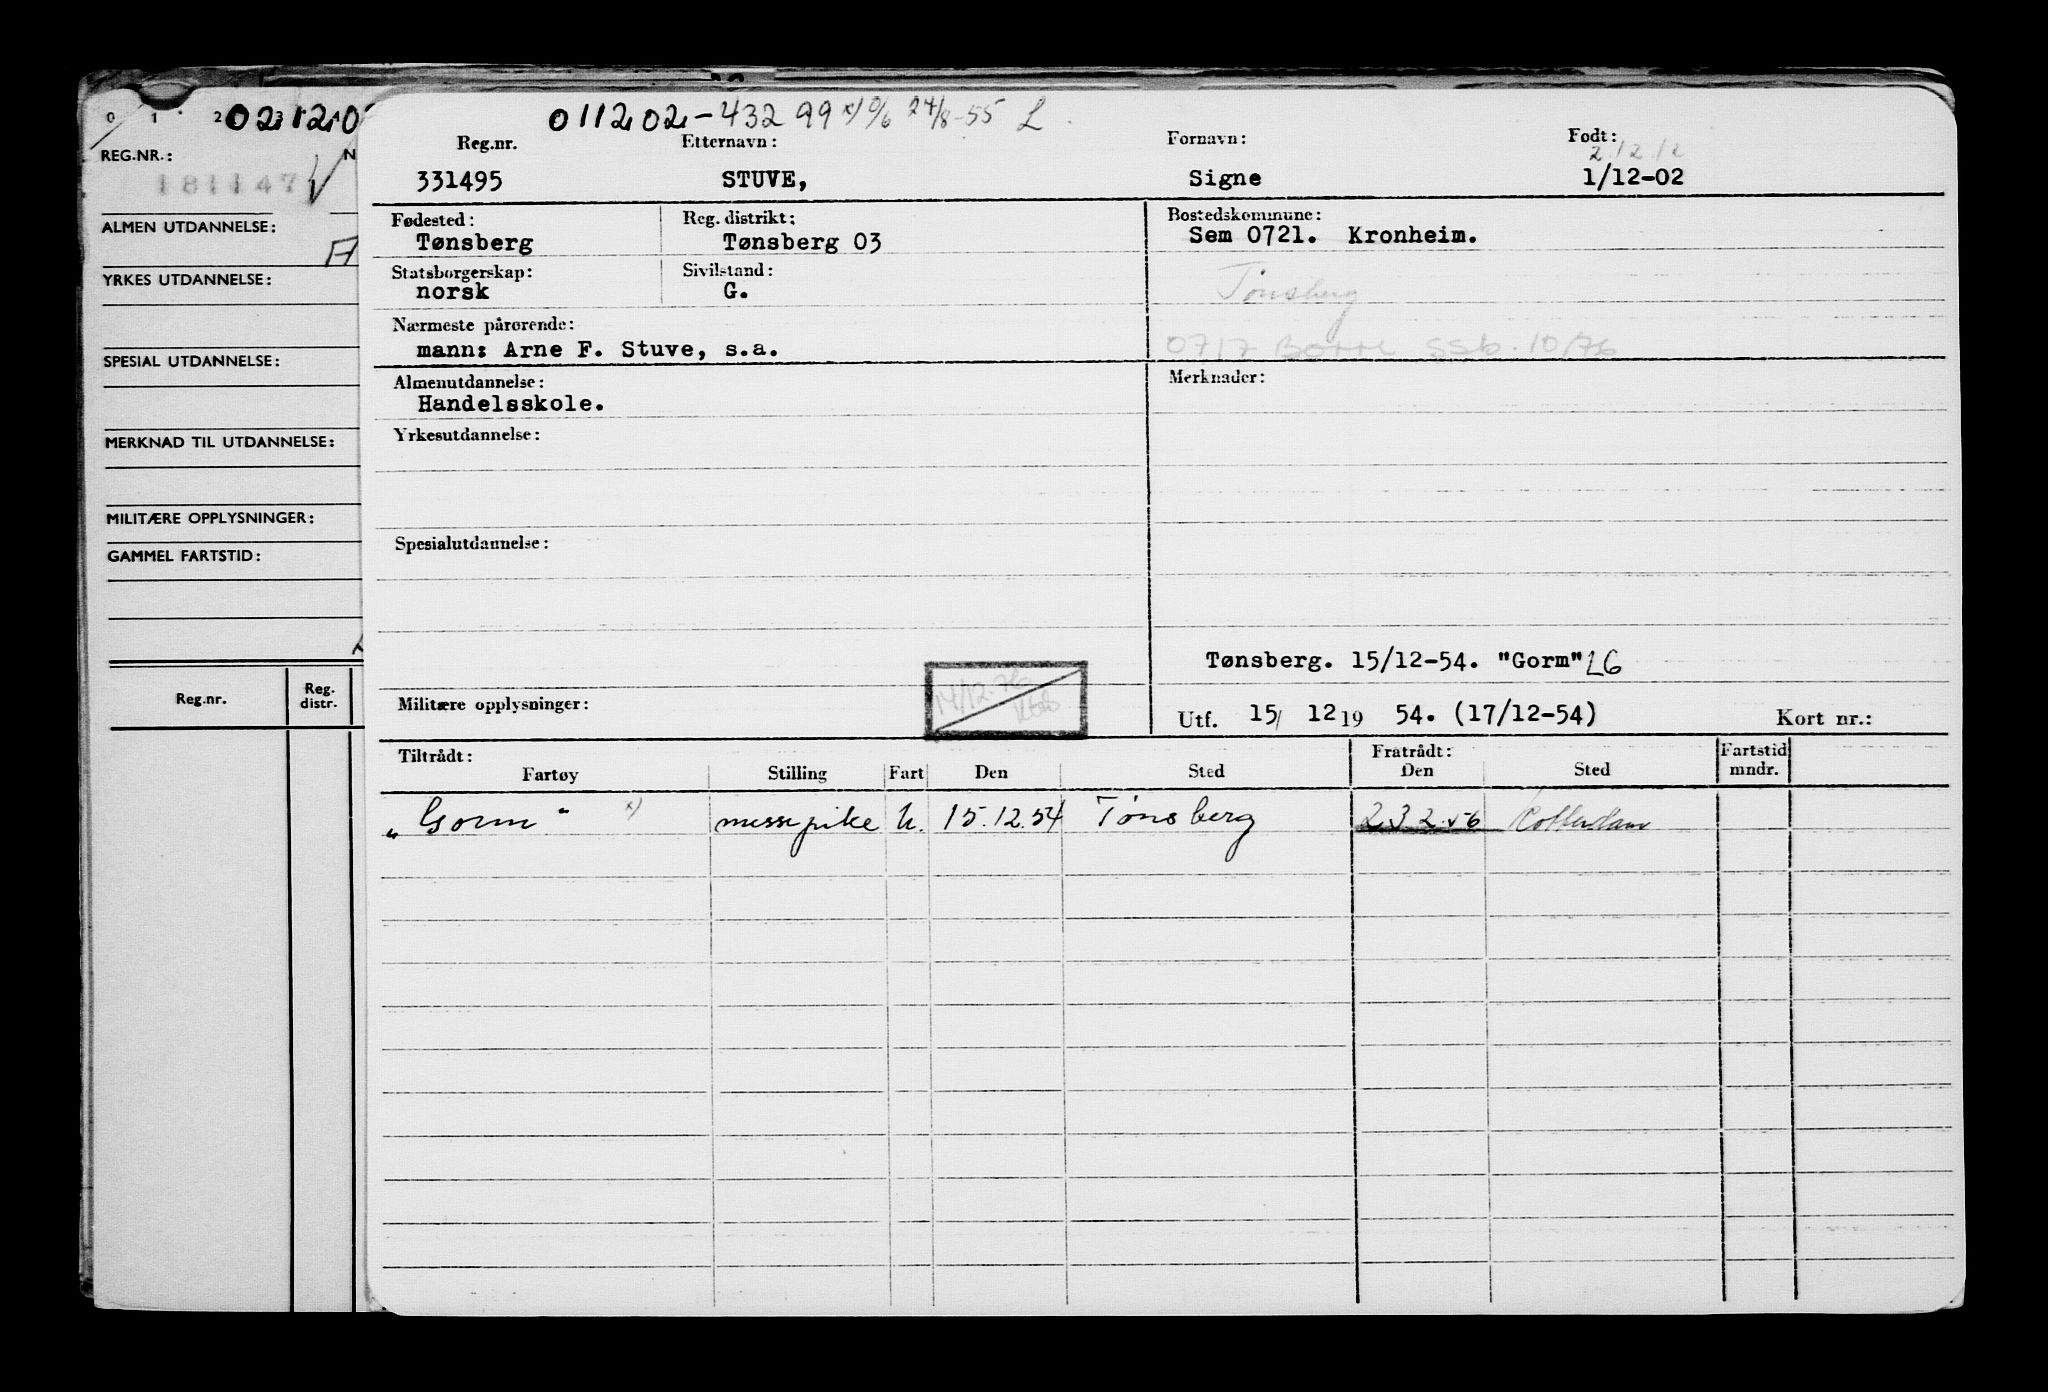 0 1 2
021210
REG.NR.: N
181147
ALMEN UTDANNELSE:
YRKES UTDANNELSE:
SPESIAL UTDANNELSE:
MERKNAD TIL UTDANNELSE:
MILITÆRE OPPLYSNINGER:
GAMMEL FARTSTID:
Reg.nr. Reg. distr.
011202-432 99 x) 0/6 24/8-55 L
Reg.nr. Etternavn: Fornavn: Født:
331495 STUVE, Signe 1/12-02
Fødested: Reg. distrikt: Bostedskommune:
Tønsberg Tønsberg 03 Sem 0721. Kronheim.
Statsborgerskap: Sivilstand:
norsk G. Tønsberg
Nærmeste pårørende:
mann: Arne F. Stuve, s.a. 0717 Borre SSb. 10/76
Almenutdannelse: Merknader:
Handelsskole.
Yrkesutdannelse:
Spesialutdannelse:
Tønsberg. 15/12-54. "Gorm" LG
14/12-76
Militære opplysninger: Utf. 15/ 12 19 54. (17/12-54) Kort nr.:
Tiltrådt: Fratrådt: Fartstid
Fartøy Stilling Fart Den Sted Den Sted mndr.
"Gorm" x) messepike U. 15.12.54 Tønsberg 23 2.56 Rotterdam